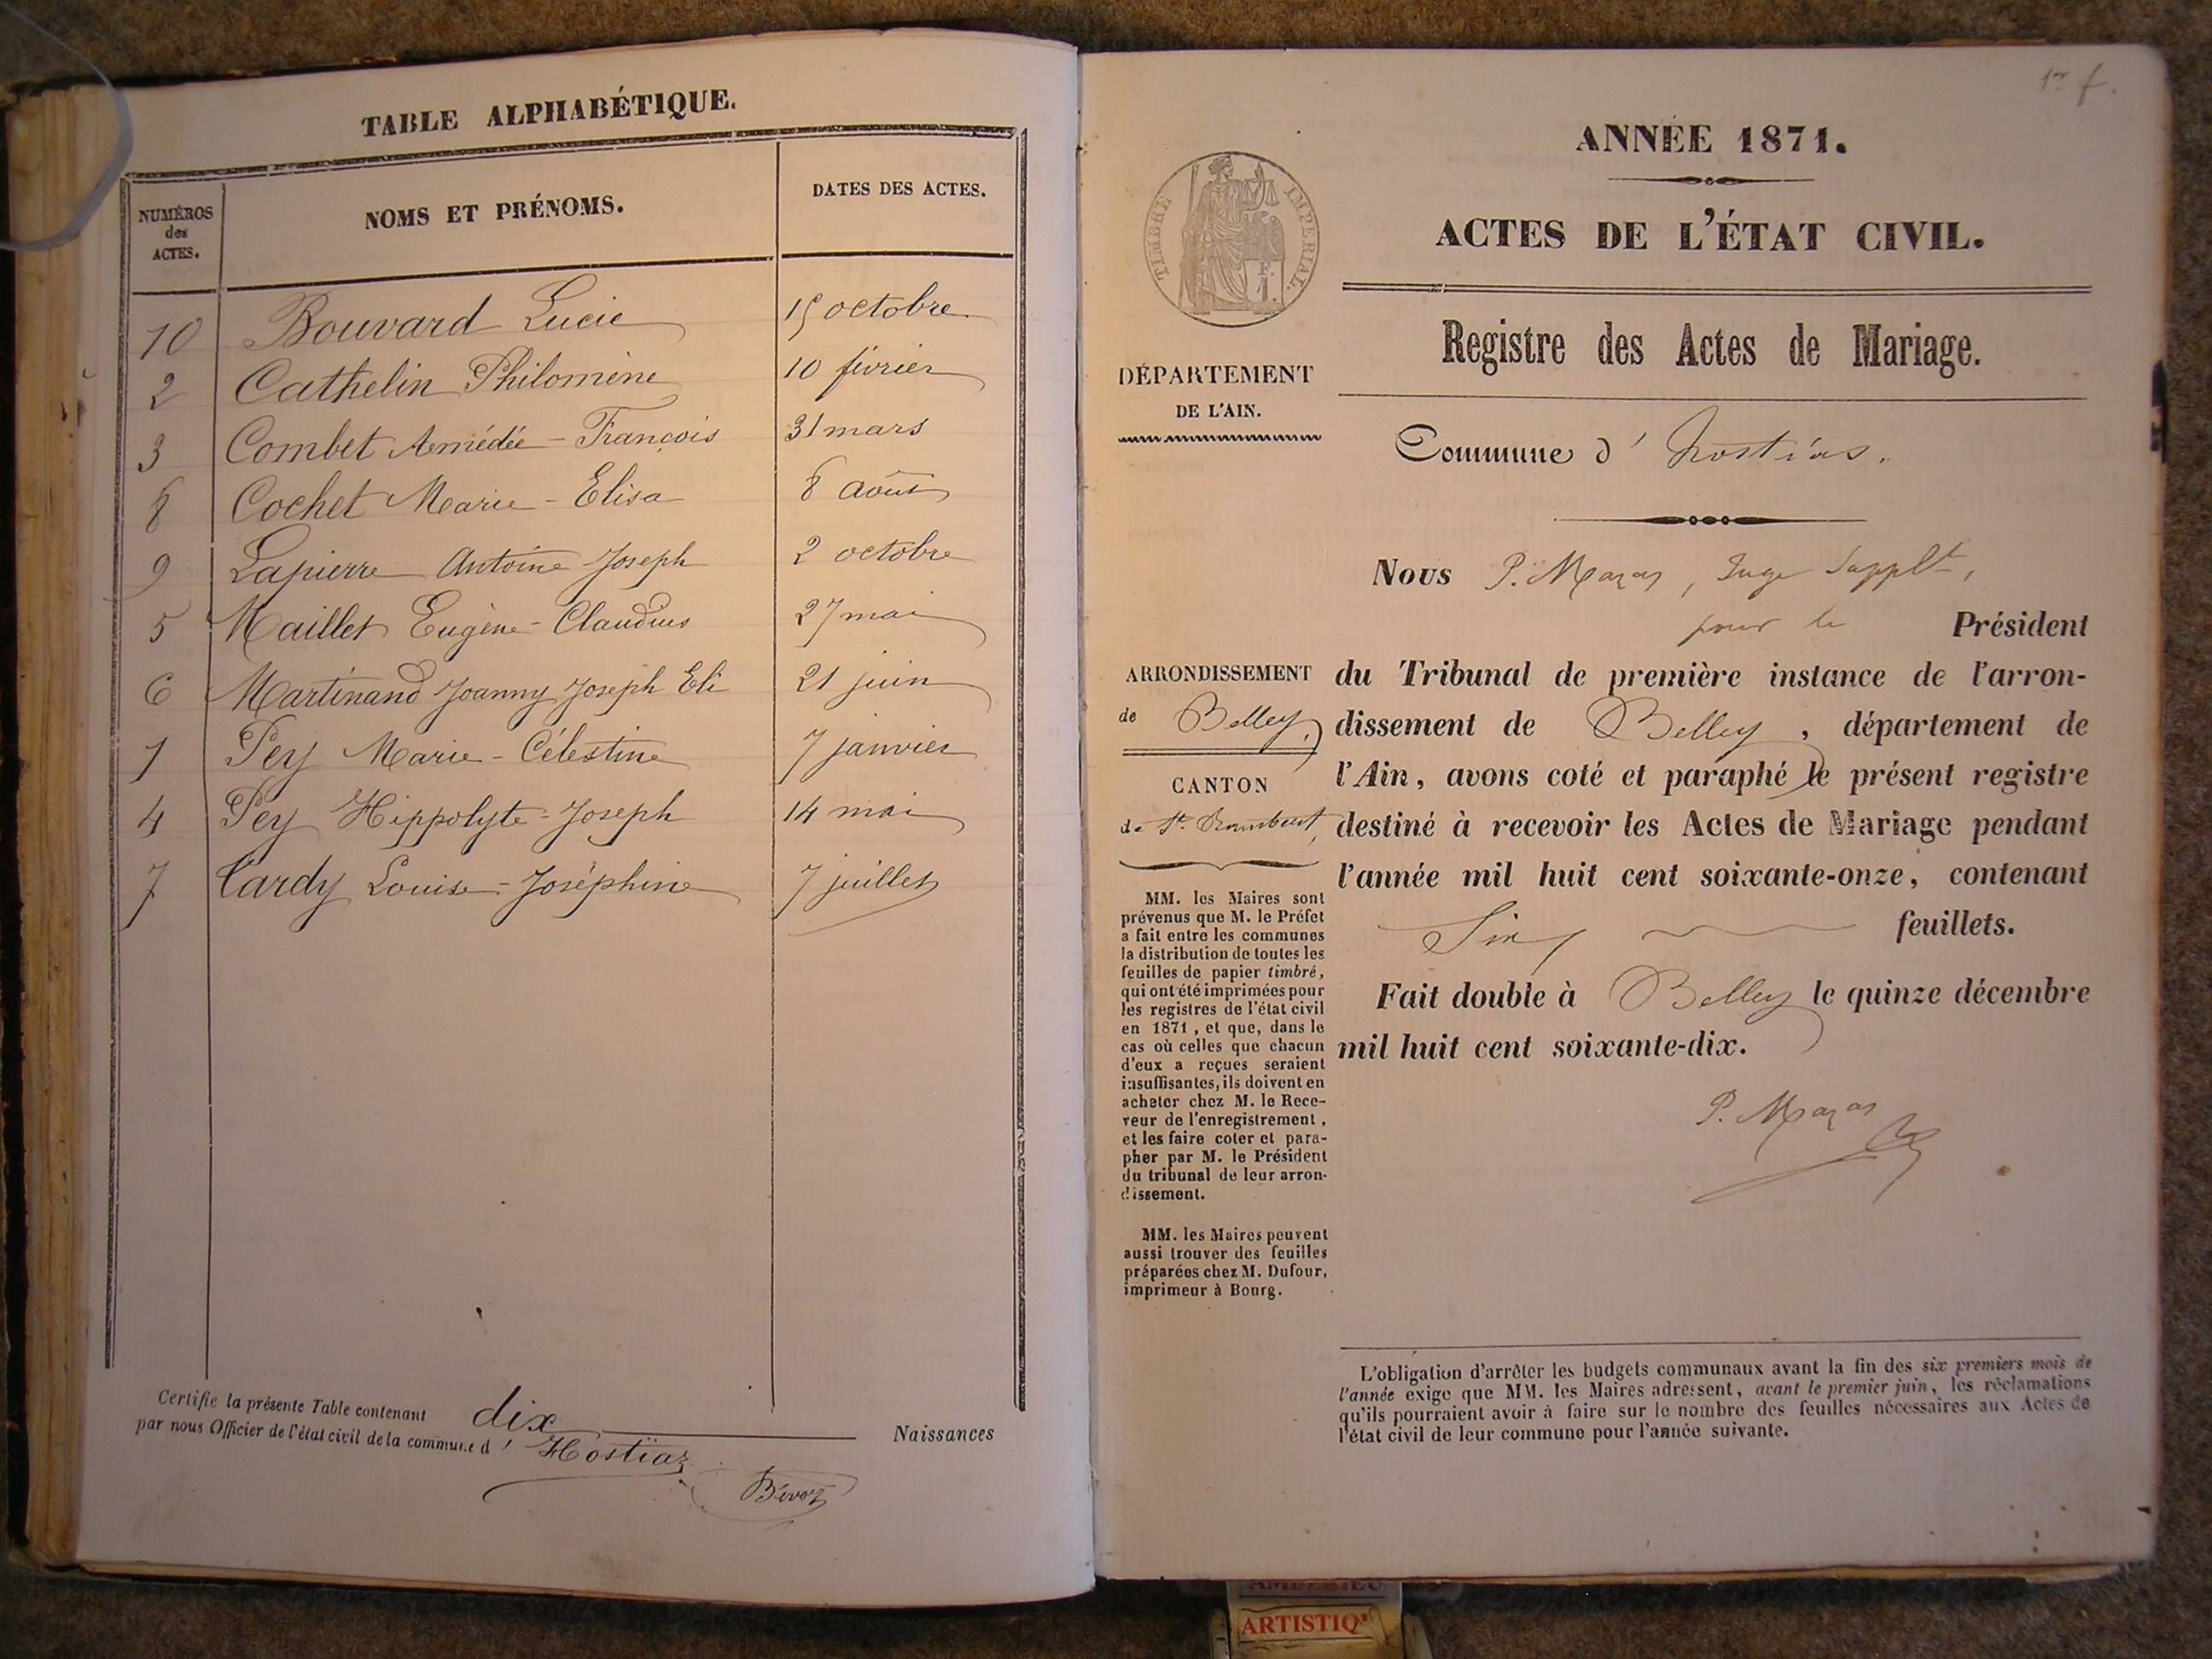 TABLE ALPHABÉTIQUE.
NUMÉROS des ACTES.
NOMS ET PRÉNOMS.
DATES DES ACTES.
10 Bouvard Lucie 15 octobre
2 Cathelin Philomène 10 février
3 Combet Amédée - François 31 mars
8 Cochet Marie - Elisa 8 août
9 Lapierre Antoine Joseph 2 octobre
5 Maillet Eugène - Claudius 27 mai
6 Martinand Joanny Joseph Eli 21 juin
1 Pey Marie - Célestine 7 janvier
4 Pey Hippolyte - Joseph 14 mai
7 Tardy Louise - Joséphine 7 juillet
Certifie la présente Table contenant dix Naissances
par nous Officier de l'état civil de la commune d' Hostiaz
1er f.
ANNÉE 1871.
ACTES DE L'ÉTAT CIVIL.
TIMBRE IMPERIAL.
F. 1.
Registre des Actes de Mariage.
DÉPARTEMENT
DE L'AIN.
Commune d' hostias.
Nous P. Mazas, Juge Supplt,
pour le Président
ARRONDISSEMENT
de Belley,
CANTON
de St. Rambert,
du Tribunal de première instance de l'arron-
dissement de Belley, département de
l'Ain, avons coté et paraphé le présent registre
destiné à recevoir les Actes de Mariage pendant
l'année mil huit cent soixante-onze, contenant
Six feuillets.
Fait double à Belley le quinze décembre
mil huit cent soixante-dix.
P. Mazas
MM. les Maires sont
prévenus que M. le Préfet
a fait entre les communes
la distribution de toutes les
feuilles de papier timbré,
qui ont été imprimées pour
les registres de l'état civil
en 1871, et que, dans le
cas où celles que chacun
d'eux a reçues seraient
insuffisantes, ils doivent en
acheter chez M. le Rece-
veur de l'enregistrement,
et les faire coter et para-
pher par M. le Président
du tribunal de leur arron-
dissement.
MM. les Maires peuvent
aussi trouver des feuilles
préparées chez M. Dufour,
imprimeur à Bourg.
L'obligation d'arrêter les budgets communaux avant la fin des six premiers mois de
l'année exige que MM. les Maires adressent, avant le premier juin, les réclamations
qu'ils pourraient avoir à faire sur le nombre des feuilles nécessaires aux Actes de
l'état civil de leur commune pour l'année suivante.
ARTISTIQ